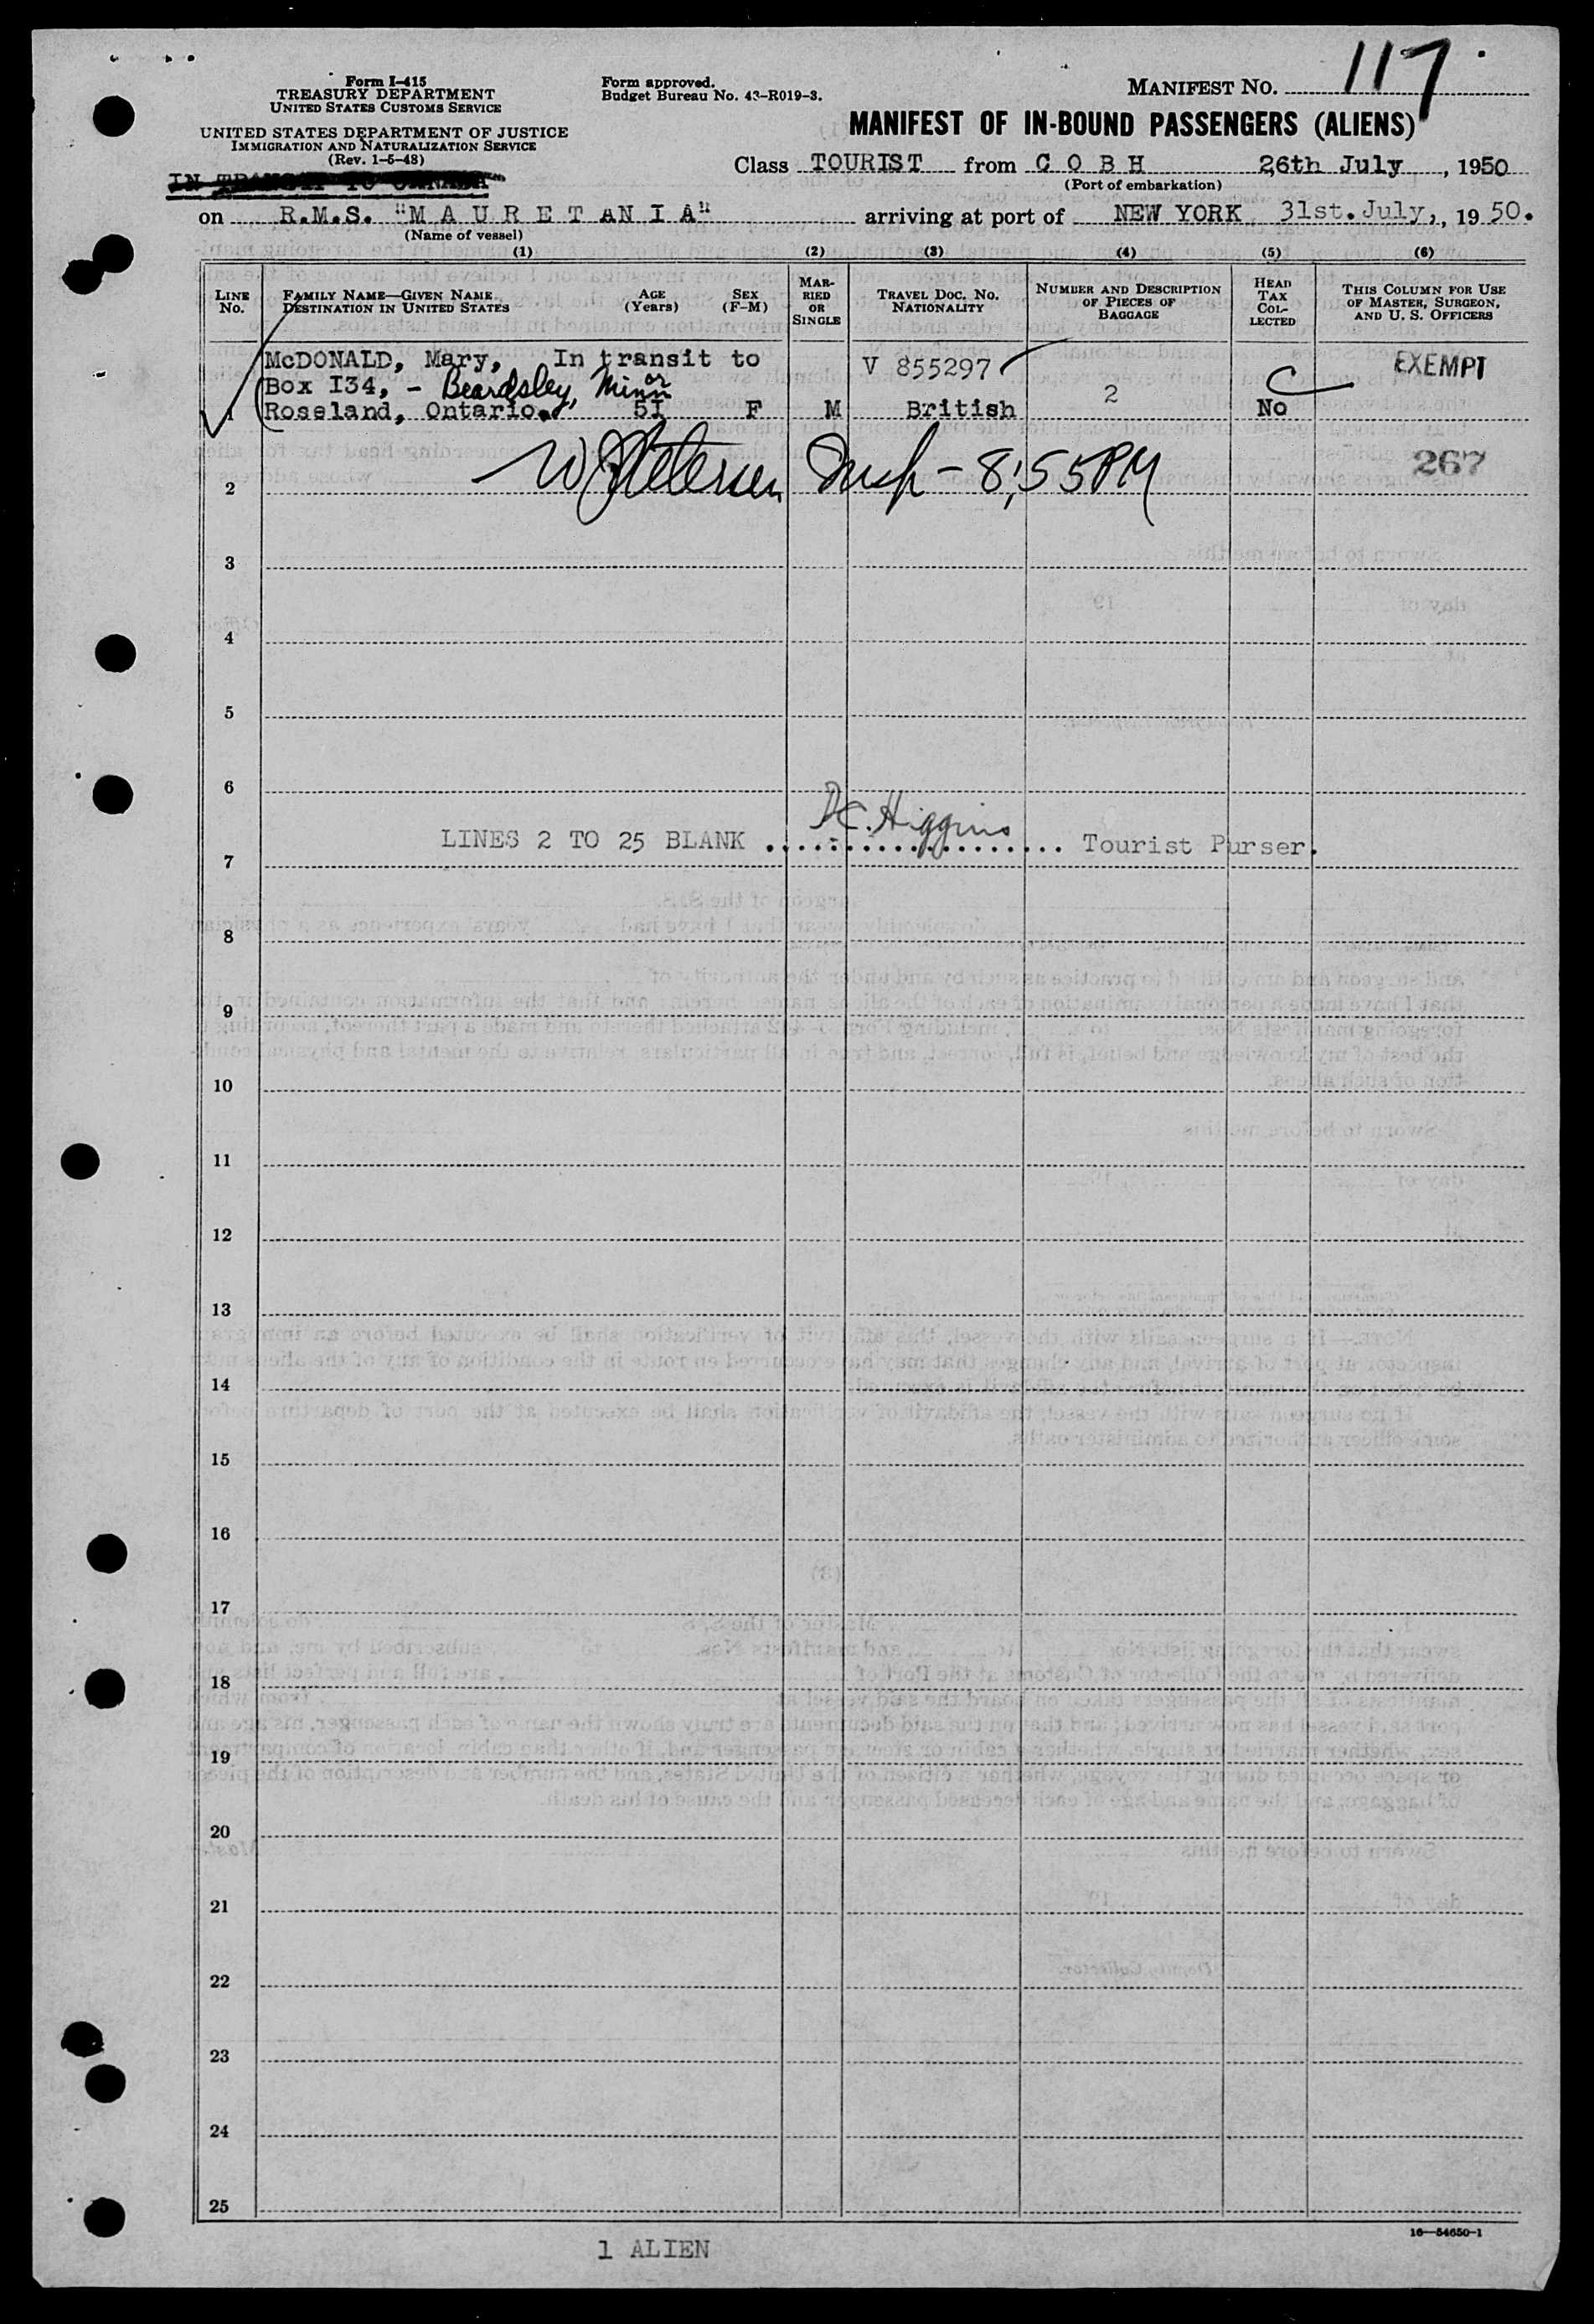 117
Form I-415
TREASURY DEPARTMENT
UNITED STATES CUSTOMS SERVICE
UNITED STATES DEPARTMENT OF JUSTICE
IMMIGRATION AND NATURALIZATION SERVICE
(Rev. 1-5-48)
Form approved.
Budget Bureau No. 43-R019-3.
MANIFEST NO.
MANIFEST OF IN-BOUND PASSENGERS (ALIENS)
IN TRANSIT TO CANADA
Class TOURIST from C O B H 26th July, 1950
(Port of embarkation)
on R.M.S. "M A U R E T A N I A" arriving at port of NEW YORK 31st. July, , 19 50.
(Name of vessel)
(1) (2) (3) (4) (5) (6)
LINE No.
FAMILY NAME—GIVEN NAME
DESTINATION IN UNITED STATES
AGE (Years)
SEX (F-M)
MARRIED OR SINGLE
TRAVEL DOC. NO.
NATIONALITY
NUMBER AND DESCRIPTION OF PIECES OF BAGGAGE
HEAD TAX COLLECTED
THIS COLUMN FOR USE OF MASTER, SURGEON, AND U. S. OFFICERS
McDONALD, Mary, In transit to V 855297 EXEMPT
Box I34, - Beardsley, Minn or 2 C
1 Roseland, Ontario. 5I F M British No
267
2 Insp - 8:55PM
3
4
5
6
D.C. Higgins
LINES 2 TO 25 BLANK .................. Tourist Purser.
7
8
9
10
11
12
13
14
15
16
17
18
19
20
21
22
23
24
25
16—54650-1
1 ALIEN